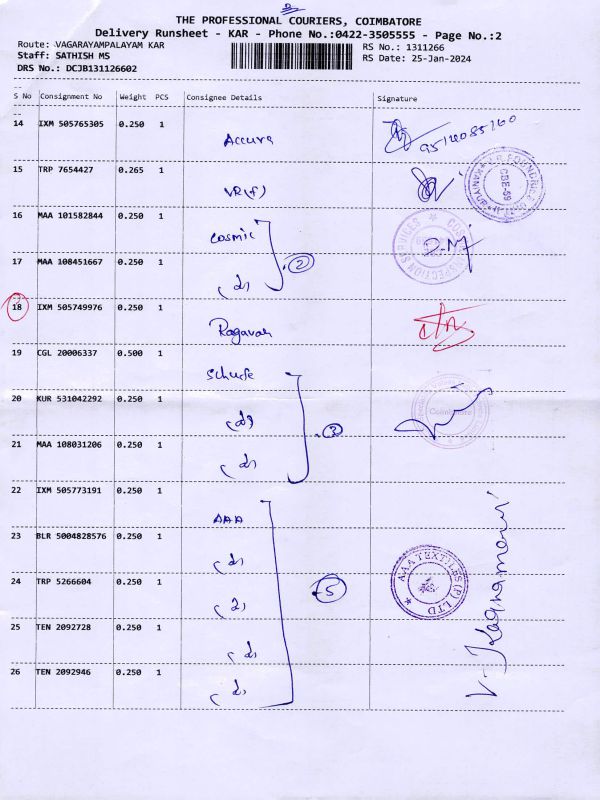 THE PROFESSIONAL COURIERS, COIMBATORE
Delivery Runsheet - KAR - Phone No.:0422-3505555 - Page No.:2
Route: VAGARAYAMPALAYAM KAR
RS No.: 1311266
Staff: SATHISH MS
RS Date: 25-Jan-2024
DRS No.: DCJB131126602
S No Consignment No Weight PCS Consignee Details Signature
14 IXM 505765305 0.250 1 Accura
15 TRP 7654427 0.265 1 VR(f)
16 MAA 101582844 0.250 1 Cosmic
17 MAA 108451667 0.250 1 (d) 2
18 IXM 505749976 0.250 1 Ragavan
19 CGL 20006337 0.500 1
20 KUR 531042292 0.250 1 (d) 3
Coimbatore
21 MAA 108031206 0.250 1 (d)
22 IXM 505773191 0.250 1 AAA
23 BLR 5004828576 0.250 1 (d)
24 TRP 5266604 0.250 1 (d) 5
AAA TEXTILES (P) LTD
25 TEN 2092728 0.250 1 (d)
26 TEN 2092946 0.250 1 (d)